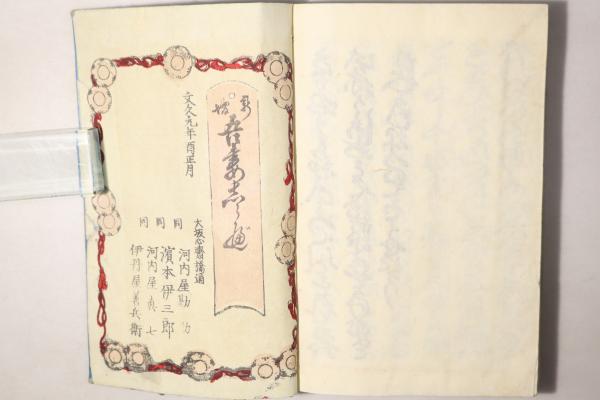 吾妻志らべ
文久元年酉正月
大坂心斎橋通
河内屋勘助
同 濱本伊三郎
同 河内屋真七
同 伊丹屋善兵衛